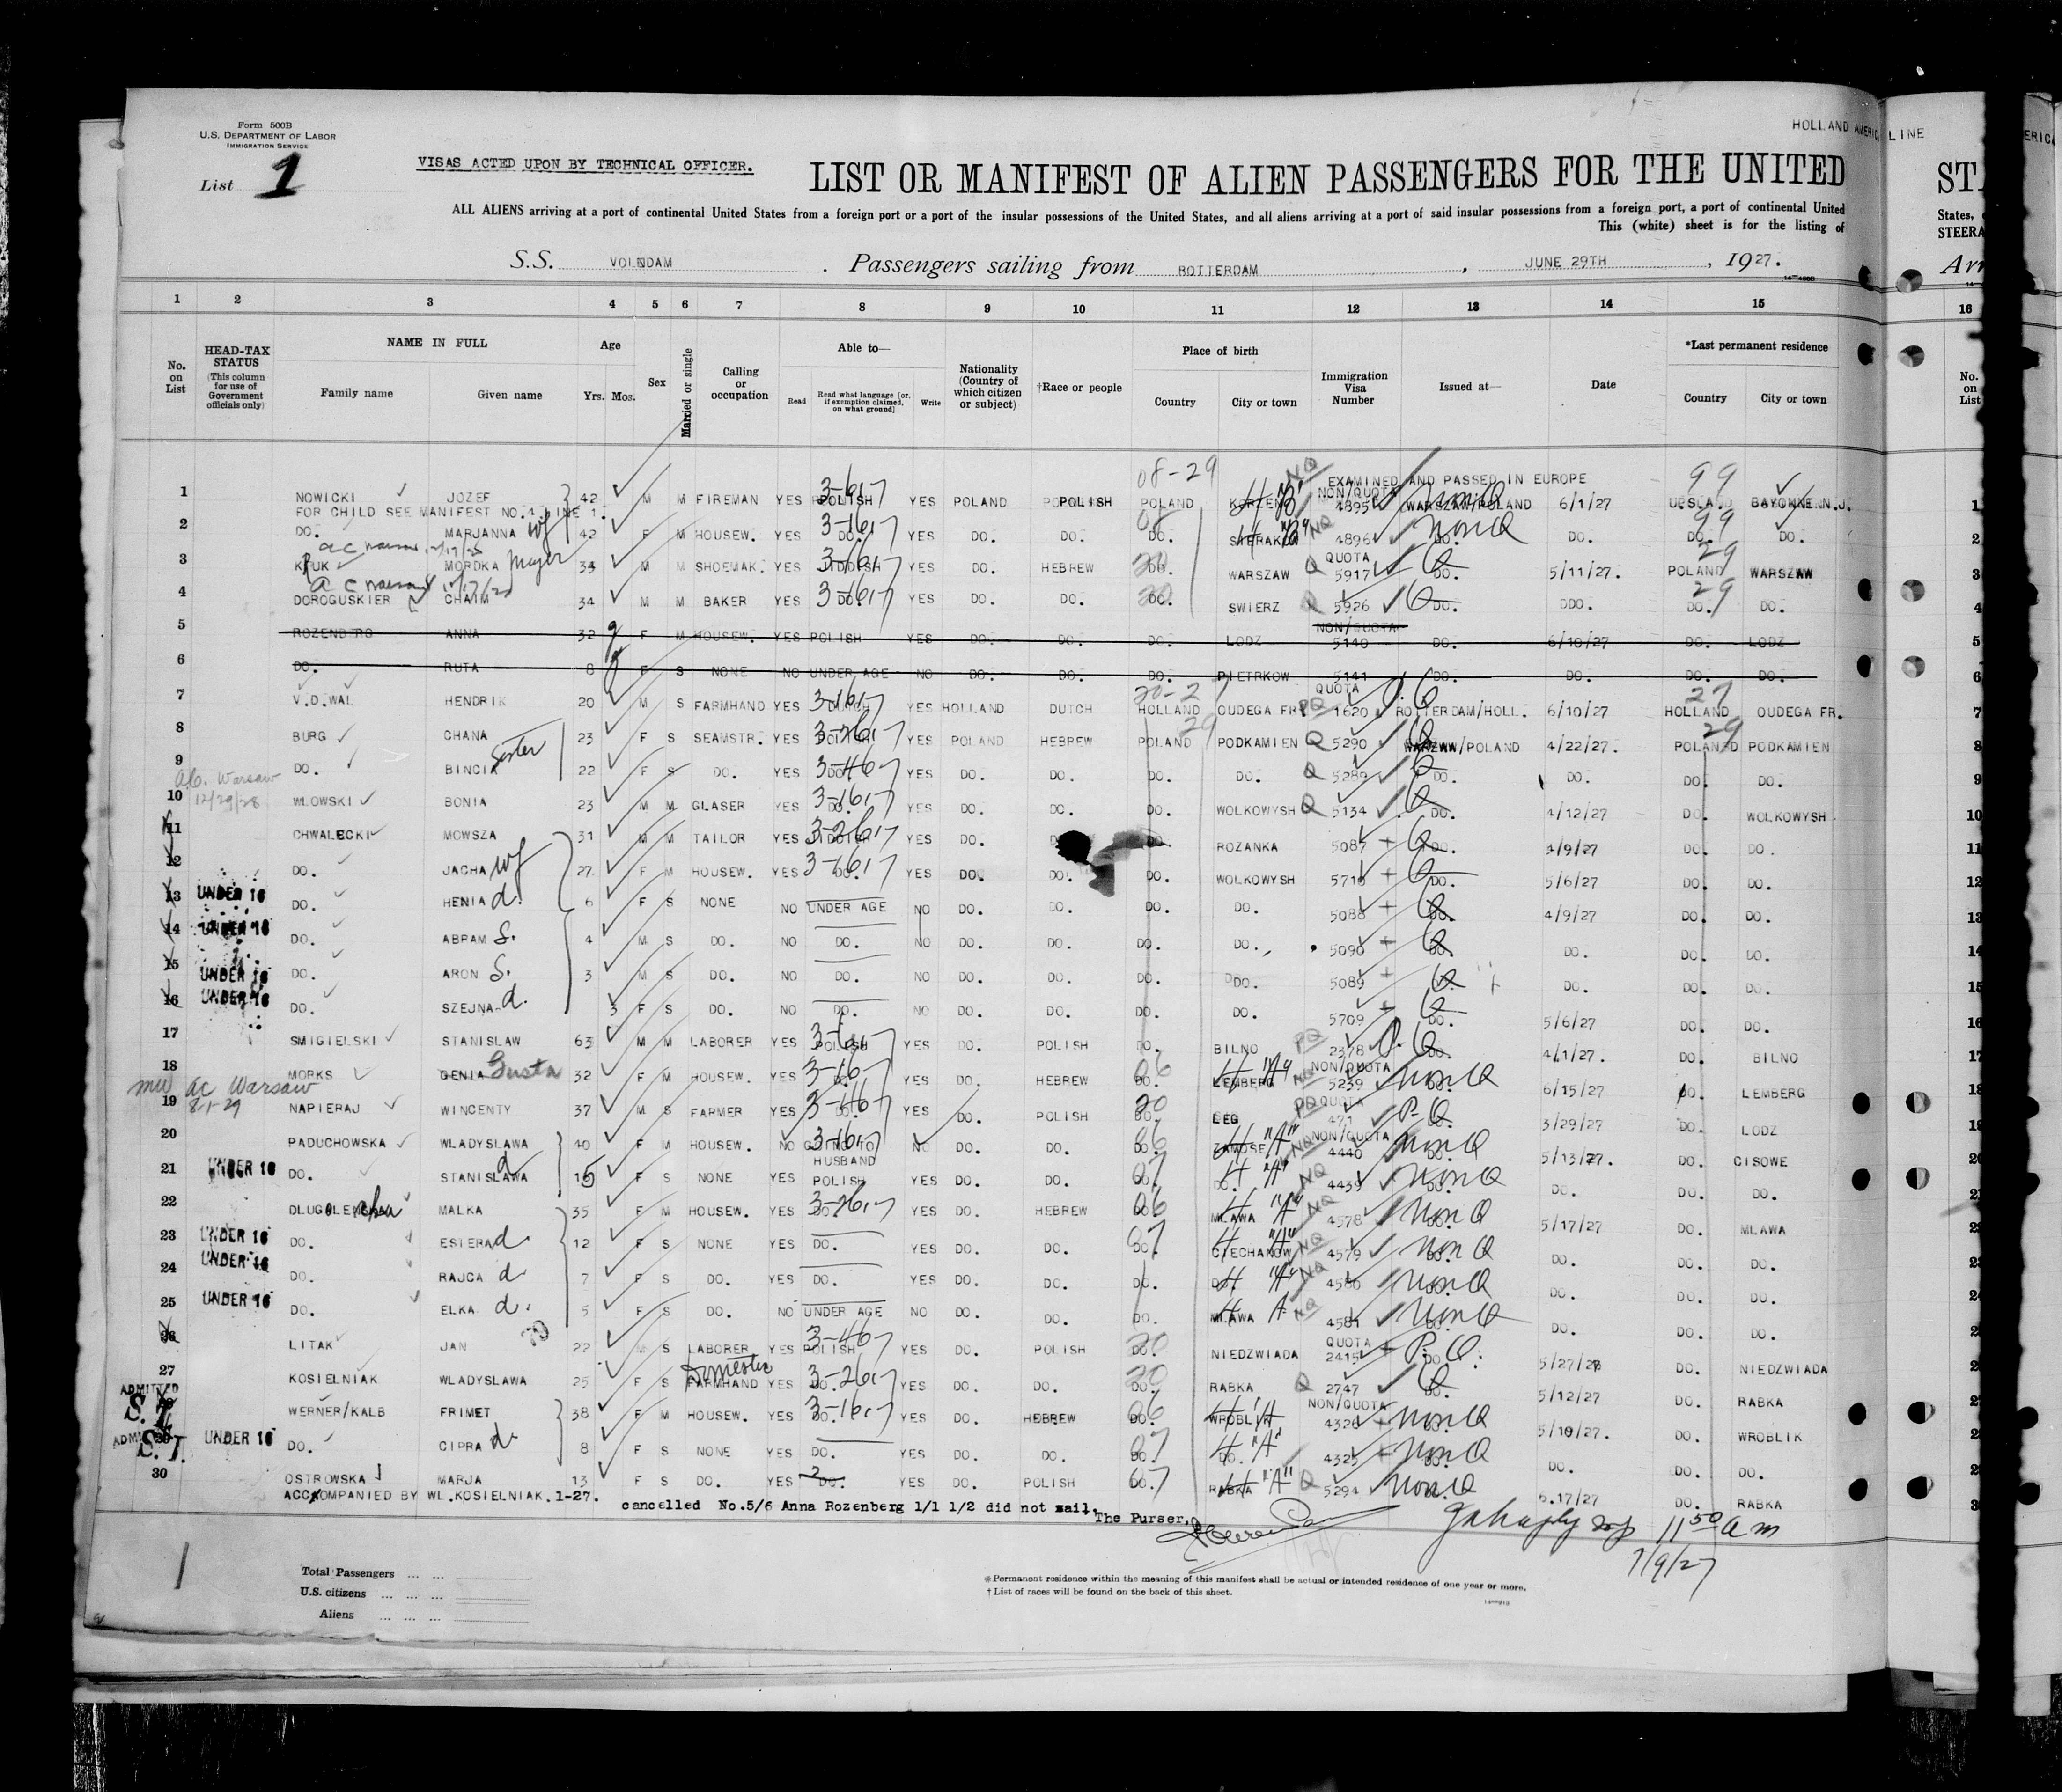 HOLLAND AMERIC LINE
Form 500B
U.S. DEPARTMENT OF LABOR
IMMIGRATION SERVICE
List 1
VISAS ACTED UPON BY TECHNICAL OFFICER.
LIST OR MANIFEST OF ALIEN PASSENGERS FOR THE UNITED
ALL ALIENS arriving at a port of continental United States from a foreign port or a port of the insular possessions of the United States, and all aliens arriving at a port of said insular possessions from a foreign port, a port of continental United
This (white) sheet is for the listing of
S.S. VOLENDAM. Passengers sailing from ROTTERDAM, JUNE 29TH, 1927.
1 2 3 4 5 6 7 8 9 10 11 12 13 14 15 16
No. on List
HEAD-TAX STATUS (This column for use of Government officials only)
NAME IN FULL Family name Given name
Age Yrs. Mos.
Sex
Married or single
Calling or occupation
Able to— Read Read what language [or, if exemption claimed, on what ground] Write
Nationality (Country of which citizen or subject)
†Race or people
Place of birth Country City or town
Immigration Visa Number
Issued at—
Date
*Last permanent residence Country City or town
No. on List
08-29 NQ EXAMINED AND PASSED IN EUROPE 99
1 NOWICKI JOZEF 42 M M FIREMAN YES POLISH YES POLAND POLISH POLAND NON/QUOTA 4895 WARSZAW/POLAND 6/1/27 BAYONNE N.J. 1
FOR CHILD SEE MANIFEST NO. 4 LINE 1.
2 DO. MARJANNA wf 42 F M HOUSEW. YES DO. YES DO. DO. DO. 4896 DO. Non Q DO. DO. DO. 2
3 KRUK MORDKA Majer 34 M M SHOEMAK. YES YES DO. HEBREW DO. WARSZAW QUOTA 5917 DO. 5/11/27. POLAND WARSZAW 3
4 DOROGUSKIER CHAIM 34 M M BAKER YES DO. YES DO. DO. DO. SWIERZ 5926 DO. DDO. DO. DO. 4
5 ROZENBERG ANNA 32 F M HOUSEW. YES POLISH YES DO. DO. DO. LODZ NON/QUOTA 5140 DO. 6/10/27 DO. LODZ 5
6 DO. RUTA 8 F S NONE NO UNDER AGE NO DO. DO. DO. PIETRKOW 5141 DO. DO. DO. DO. 6
7 V.D.WAL HENDRIK 20 M S FARMHAND YES DUTCH YES HOLLAND DUTCH HOLLAND OUDEGA FR. PQ QUOTA 1620 ROTTERDAM/HOLL. 6/10/27 HOLLAND OUDEGA FR. 7
8 BURG CHANA 23 F S SEAMSTR. YES YES POLAND HEBREW POLAND PODKAMIEN Q 5290 WARZAW/POLAND 4/22/27. POLANED PODKAMIEN 8
9 DO. BINCIA Sister 22 F S DO. YES DO. YES DO. DO. DO. DO. Q 5289 DO. DO. DO. DO. 9
A.C. Warsaw 12/29/28
10 WLOWSKI BONIA 23 M M GLASER YES DO. YES DO. DO. DO. WOLKOWYSH Q 5134 DO. 4/12/27 DO. WOLKOWYSH 10
11 CHWALECKI MOWSZA 31 M M TAILOR YES YES DO. DO. ROZANKA 5087 DO. 4/9/27 DO. DO. 11
12 DO. JACHA wf 27 F M HOUSEW. YES DO. YES DO. DO. DO. WOLKOWYSH 5710 DO. 5/6/27 DO. DO. 12
13 UNDER 16 DO. HENIA d. 6 F S NONE NO UNDER AGE NO DO. DO. DO. DO. 5088 DO. 4/9/27 DO. DO. 13
14 UNDER 16 DO. ABRAM S. 4 M S DO. NO DO. NO DO. DO. DO. DO. 5090 DO. DO. DO. DO. 14
15 UNDER 16 DO. ARON S. 3 M S DO. NO DO. NO DO. DO. DO. DO. 5089 DO. DO. DO. DO. 15
16 UNDER 16 DO. SZEJNA d. 3 F S DO. NO DO. NO DO. DO. DO. DO. 5709 DO. 5/6/27 DO. DO. 16
17 SMIGIELSKI STANISLAW 63 M M LABORER YES POLISH YES DO. POLISH DO. BILNO PQ 2378 DO. 4/1/27. DO. BILNO 17
18 MORKS GENIA Gusta 32 F M HOUSEW. YES YES DO. HEBREW DO. LEMBERG NON/QUOTA 5239 Non Q 6/15/27 DO. LEMBERG 18
mw ac Warsaw 8-1-29
19 NAPIERAJ WINCENTY 37 M S FARMER YES DO. YES DO. POLISH DO. LEG PQ QUOTA 471 P.Q. 3/29/27 DO. LODZ 19
20 PADUCHOWSKA WLADYSLAWA 40 F M HOUSEW. NO GOING TO HUSBAND NO DO. DO. DO. NON/QUOTA 4440 Non Q 5/13/27. DO. CISOWE 20
21 UNDER 16 DO. STANISLAWA d 15 F S NONE YES POLISH YES DO. DO. DO. DO. 4439 Non Q DO. DO. DO. 21
22 MALKA 35 F M HOUSEW. YES DO. YES DO. HEBREW DO. MLAWA 4578 Non Q 5/17/27 DO. MLAWA
23 UNDER 16 DO. ESTERA d 12 F S NONE YES DO. YES DO. DO. DO. CIECHANOW NQ 4579 Non Q DO. DO. DO.
24 UNDER 16 DO. RAJCA d 7 F S DO. YES DO. YES DO. DO. DO. DO. NQ 4580 Non Q DO. DO. DO.
25 UNDER 16 DO. ELKA d. 5 F S DO. NO UNDER AGE NO DO. DO. DO. MLAWA NQ 4581 Non Q DO. DO. DO.
26 LITAK JAN 22 M S LABORER YES POLISH YES DO. POLISH DO. NIEDZWIADA QUOTA 2415 P.Q. 5/27/27 DO. NIEDZWIADA
27 KOSIELNIAK WLADYSLAWA 25 F S FARMHAND Domestic YES DO. YES DO. DO. DO. RABKA Q 2747 DO. 5/12/27 DO. RABKA
ADMITTED S.I. 28 WERNER/KALB FRIMET 38 F M HOUSEW. YES DO. YES DO. HEBREW DO. WROBLIK NON/QUOTA 4326 Non Q 5/10/27. DO. WROBLIK
ADMITTED S.I. 29 UNDER 16 DO. CIPRA d 8 F S NONE YES DO. YES DO. DO. DO. DO. "A" 4325 Non Q DO. DO. DO.
30 OSTROWSKA MARJA 13 F S DO. YES DO. YES DO. POLISH RABKA "A" Q 5294 Non Q 6.17/27 DO. RABKA
ACCKOMPANIED BY WL.KOSIELNIAK.1-27.
cancelled No.5/6 Anna Rozenberg 1/1 1/2 did not sail.
The Purser,
11 50 a m
7/9/27
1
Total Passengers
U.S. citizens
Aliens
*Permanent residence within the meaning of this manifest shall be actual or intended residence of one year or more.
†List of races will be found on the back of this sheet.